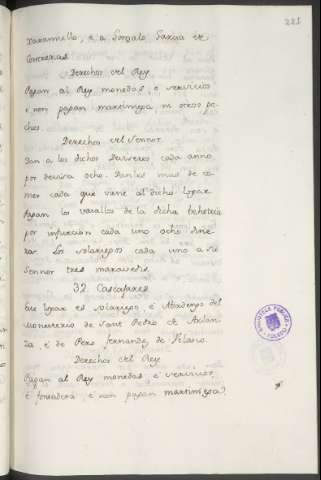 221
Xaramiello, e a Gonzalo Garcia de
Contreras
Derechos del Rey
Pagan al Rey monedas, é servicios
é non pagan martiniega ni otros pe-
chos.
Derechos del Sennor
Dan a los dichos Deviseros cada anno
por devisa ocho. Danles mas de co-
mer cada que viene al dicho Logar
Pagan los vasallos de la dicha behetria
por infurcion cada uno ocho dine-
ros. Los solariegos cada uno a su
Sennor tres maravedis.
32. Cascajares
Este logar es solariego, é Abadengo del
monesterio de Sant Pedro de Arlan-
za, é de Pero Fernandez de Velasco.
Derechos del Rey
Pagan al Rey monedas é servicios,
é fonsadera, é non pagan martiniega?
BIBLIOTECA PUBLICA
TOLEDO